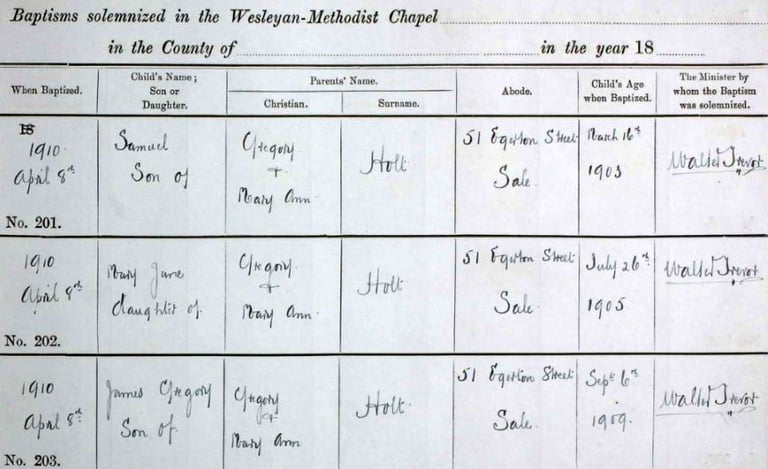 Baptisms solemnized in the Wesleyan-Methodist Chapel
in the County of in the year 18
When Baptized. Child's Name; Son or Daughter. Parents' Name. Christian. Surname. Abode. Child's Age when Baptized. The Minister by whom the Baptism was solemnized.
18
1910 Samuel Gregory Holt 51 Egerton Street March 16th Walter Trevor
April 8th Son of + Mary Ann Sale. 1903
No. 201.
1910 Mary Jane Gregory Holt 51 Egerton Street July 26th Walter Trevor
April 8th daughter of + Mary Ann Sale. 1905
No. 202.
1910 James Gregory Gregory Holt 51 Egerton Street Sept 6th Walter Trevor
April 8th Son of + Mary Ann Sale. 1909.
No. 203.